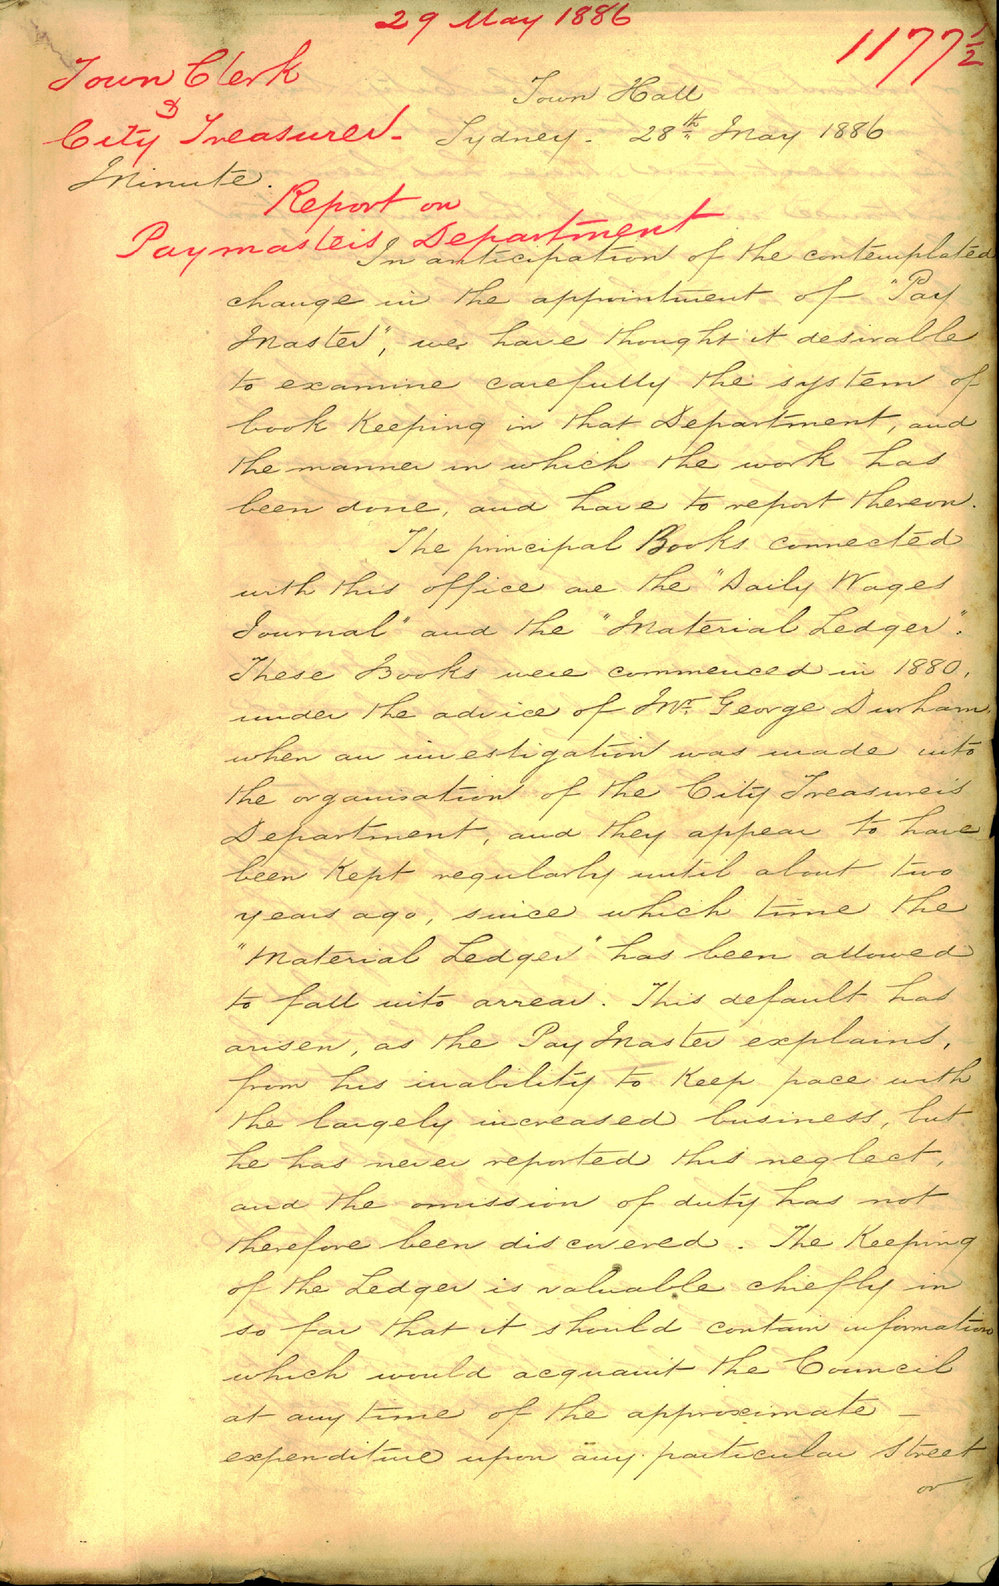 29 May 1886
1177½
Town Clerk
&
City Treasurer -
Town Hall
Sydney. 28th May 1886
Minute.
Report on
Paymaster's Department
In anticipation of the contemplated
change in the appointment of "Pay
Master", we have thought it desirable
to examine carefully the system of
book Keeping in that Department, and
the manner in which the work has
been done, and have to report thereon.
The principal Books connected
with this office are the "Daily Wages
Journal" and the "Material Ledger".
These Books were commenced in 1880,
under the advice of Mr. George Durham,
when an investigation was made into
the organisation of the City Treasurer's
Department, and they appear to have
been Kept regularly until about two
years ago, since which time the
"Material Ledger" has been allowed
to fall into arrear. This default has
arisen, as the Pay Master explains,
from his inability to Keep pace with
the largely increased business, but
he has never reported this neglect,
and the omission of duty has not
therefore been discovered. The Keeping
of the Ledger is valuable chiefly in
so far that it should contain information
which would acquaint the Council
at any time of the approximate -
expenditure upon any particular Street
or